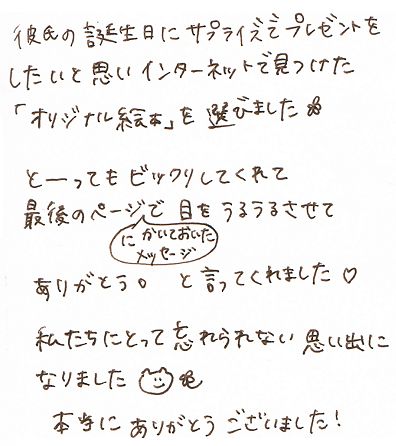 彼氏の誕生日にサプライズでプレゼントを
したいと思いインターネットで見つけた
「オリジナル絵本」を選びました
とーってもビックリしてくれて
最後のページで目をうるうるさせて
にかいておいた
メッセージ
ありがとう。と言ってくれました♡
私たちにとって忘れられない思い出に
なりました
本当にありがとうございました!